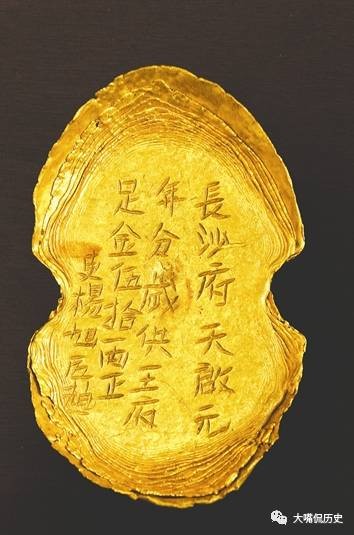 長沙府天啟元
年分歲供王府
足金伍拾兩正
吏楊旭匠
大嘴侃历史